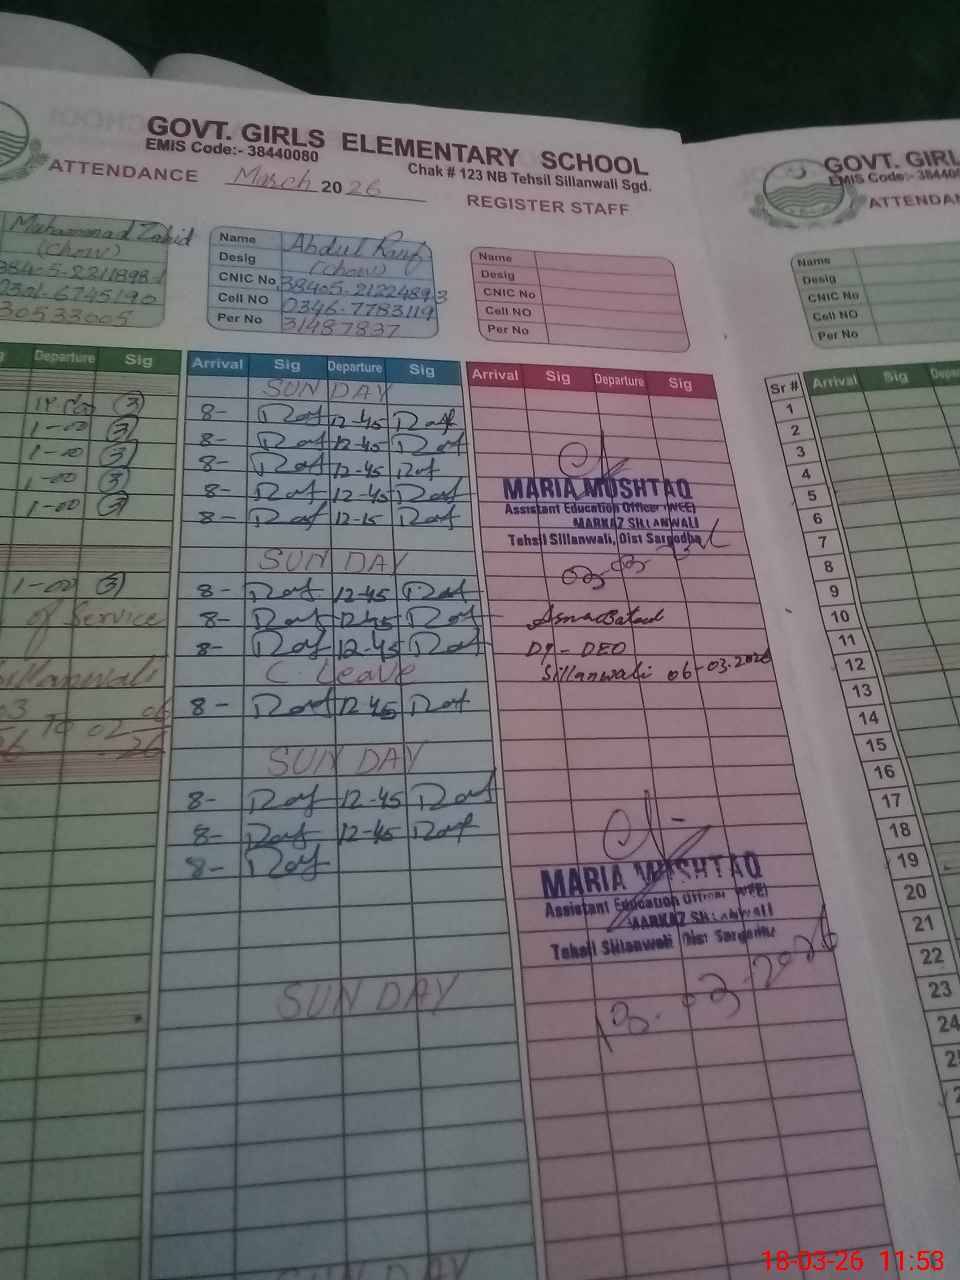 GOVT. GIRLS ELEMENTARY SCHOOL
EMIS Code:- 38440080
Chak # 123 NB Tehsil Sillanwali Sgd.
ATTENDANCE March 2026 REGISTER STAFF
Muhammad Zahid
(Chow)
38405-2211898-1
0301-6745190
30533005
Name Abdul Rauf
Desig (Chow)
CNIC No 38405-2122489-3
Cell NO 0346-7783119
Per No 31487837
Name
Desig
CNIC No
Cell NO
Per No
Departure Sig
1-00 3
1-00 3
1-00 3
1-00 3
1-00 3
of Service
Sillanwali
Arrival Sig Departure Sig
SUNDAY
8- Raf 12-45 Raf
8- Raf 12-45 Raf
8- Raf 12-45 Raf
8- Raf 12-45 Raf
8- Raf 12-15 Raf
SUNDAY
8- Raf 12-45 Raf
8- Raf 12-45 Raf
8- Raf 12-45 Raf
C. Leave
8- Raf 12-45 Raf
SUNDAY
8- Raf 12-45 Raf
8- Raf 12-45 Raf
8- Raf
SUNDAY
SUNDAY
Arrival Sig Departure Sig
MARIA MUSHTAQ
Assistant Education Officer (WEE)
MARKAZ SILLANWALI
Tehsil Sillanwali, Dist Sargodha
Dy-DEO
Sillanwali 06-03-2026
MARIA MUSHTAQ
Assistant Education Officer (WEE)
MARKAZ SILLANWALI
Tehsil Sillanwali, Dist Sargodha
-03-2026
GOVT. GIRL
EMIS Code:- 384400
ATTENDAN
Name
Desig
CNIC No
Cell NO
Per No
Sr # Arrival Sig Depar
1
2
3
4
5
6
7
8
9
10
11
12
13
14
15
16
17
18
19
20
21
22
23
24
18-03-26 11:53